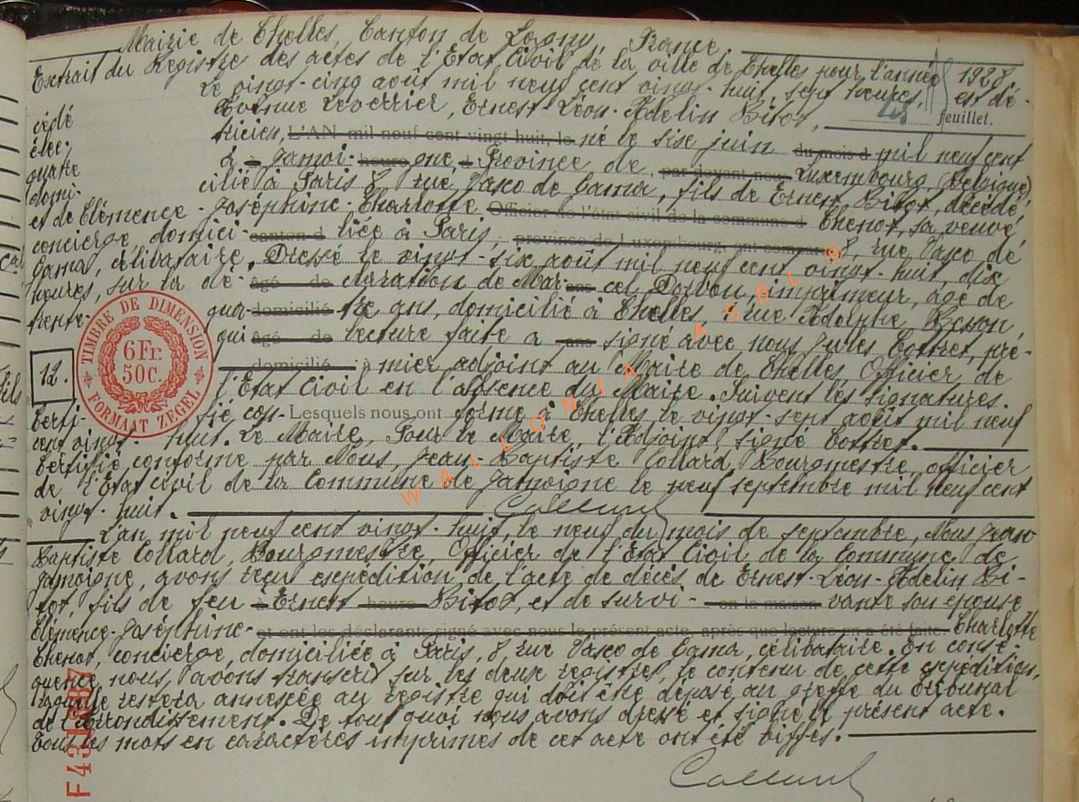 Mairie de Chelles, Canton de Lagny France.
Extrait du Registre des actes de l'Etat Civil de la ville de Chelles pour l'année 1928
Le vingt-cinq août mil neuf cent vingt-huit, sept heures, est dé-
cédé Avenue Leverrier, Ernest-Léon-Adelin Bitot, feuillet.
élec- tricien, L'AN mil neuf cent vingt huit, le né le seize juin du mois d mil neuf cent
quatre à Jamoi- heure gne à Province de, par devant nou Luxembourg (Belgique)
domi- cilié à Paris 8 rue Vasco de Gama, fils de Ernest Bitot, décédé
et de Clémence-Joséphine-Charlotte Officier de l'état civil de la commune d Thenot, sa veuve
concierge, domici- canton d liée à Paris, province de Luxembourg, ont comparu 8, rue Vasco de
Gama, célibataire. Dressé le vingt-six août mil neuf cent vingt-huit, dix
heures, sur la dé- âgé de claration de Mar ans cel Dorbon, imprimeur, âgé de
trente- qua- domicilié tre ans, domicilié à Chelles, rue Adolphe,
qui âgé de lecture faite a ans signé avec nous Jules Cottret, pre-
12. domicilié à mier adjoint au Maire de Chelles, Officier de
l'Etat Civil en l'absence du Maire. Suivent les signatures.
Certi- fié con- Lesquels nous ont forme à Chelles le vingt-sept août mil neuf
cent vingt-huit. Le Maire, Pour le Maire, l'Adjoint, signé Cottret.
Certifié conforme par Nous, Jean-Baptiste Collard, Bourgmestre, officier
de l'Etat civil de la Commune de Jamoigne le neuf septembre mil neuf cent
vingt-huit. Collard
L'an mil neuf cent vingt-huit le neuf du mois de septembre, Nous Jean
Baptiste Collard, Bourgmestre, Officier de l'Etat Civil de la Commune de
Jamoigne, avons reçu expédition de l'acte de décès de Ernest-Léon-Adelin Bi-
tot, fils de feu à Ernest heure Bitot, et de survi- en la maison vante son épouse
Clémence-Joséphine- et ont les déclarants signé avec nous le présent acte, après que lecture en a été faite. Charlotte
Thenot, concierge, domiciliée à Paris, 8 rue Vasco de Gama, célibataire. En consé-
quence nous, avons transcrit sur les deux registres, le contenu de cette expédition,
laquelle restera annexée au registre qui doit être déposé au greffe du tribunal
de l'arrondissement. De tout quoi nous avons dressé et signé le présent acte.
Tous les mots en caractères imprimés de cet acte ont été biffés.
Collard
TIMBRE DE DIMENSION
6Fr.
50C.
FORMAAT ZEGEL
WALLONIA ASBL